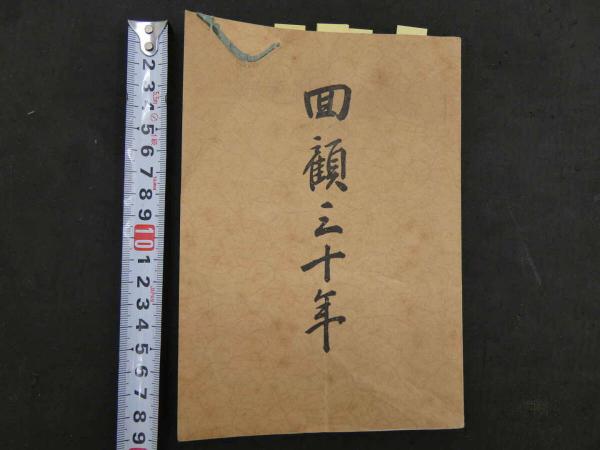 回顧三十年
2
3
4
5
6
7
8
9
10
1
2
3
4
5
6
7
8
9